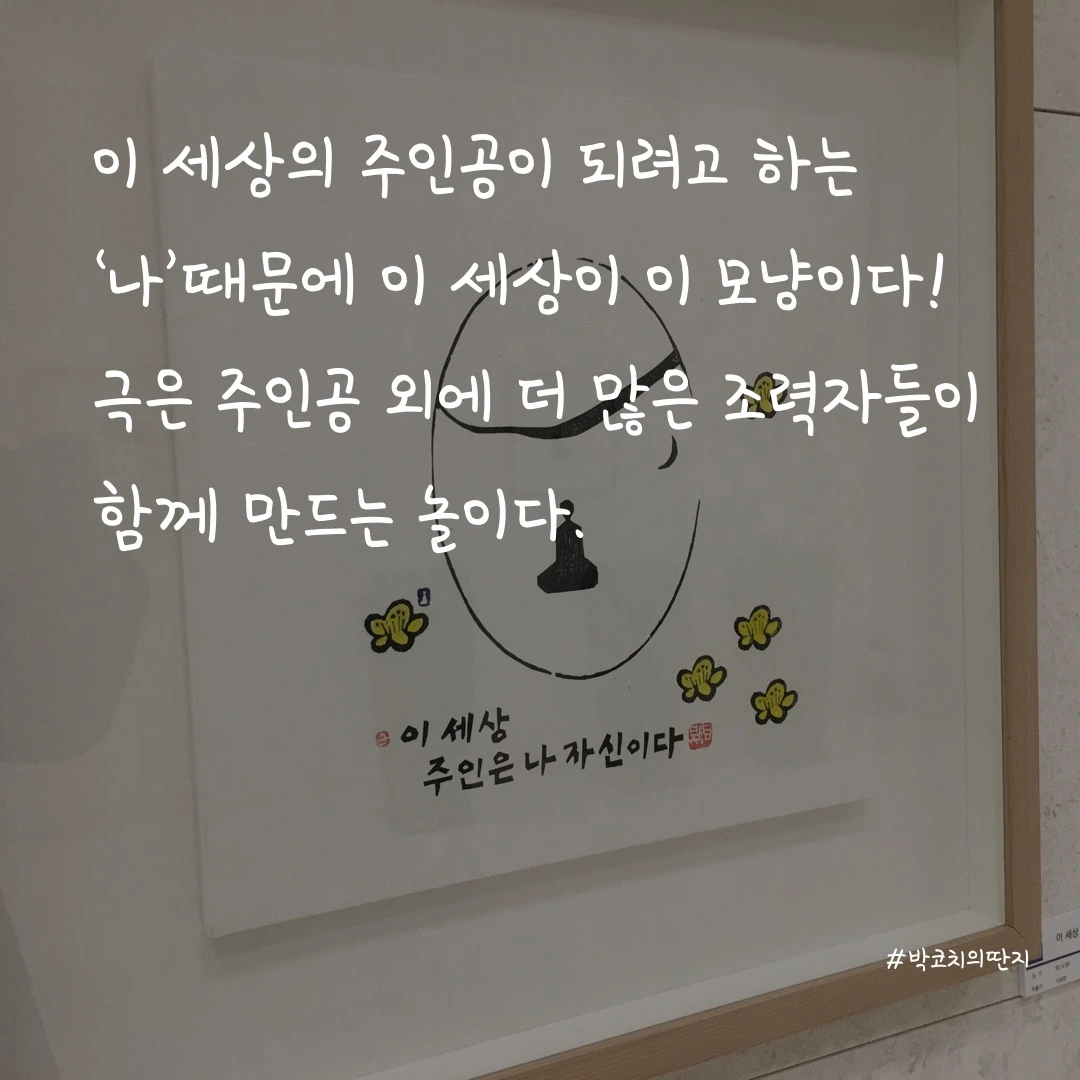 이 세상의 주인공이 되려고 하는
‘나’때문에 이 세상이 이 모냥이다!
극은 주인공 외에 더 많은 조력자들이
함께 만드는 놀이다.
이 세상
주인은 나 자신이다
#박코치의딴지
이 세상